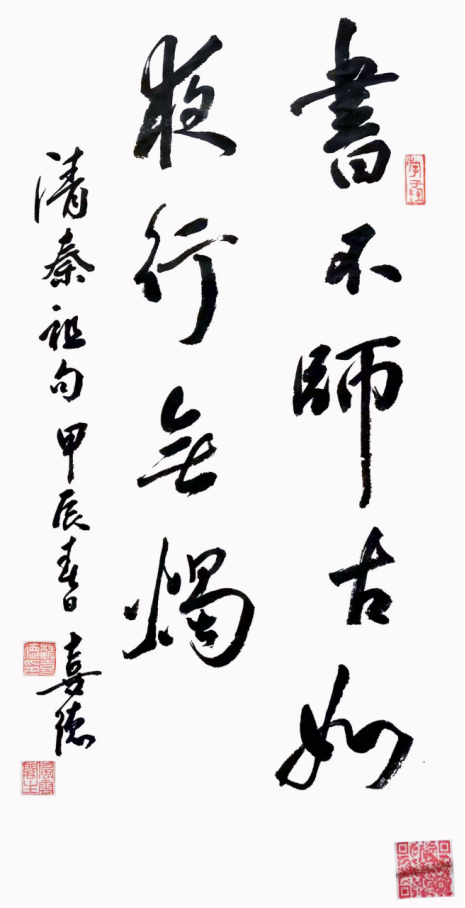 書不師古如
夜行無燭
清秦祖句甲辰春喜德